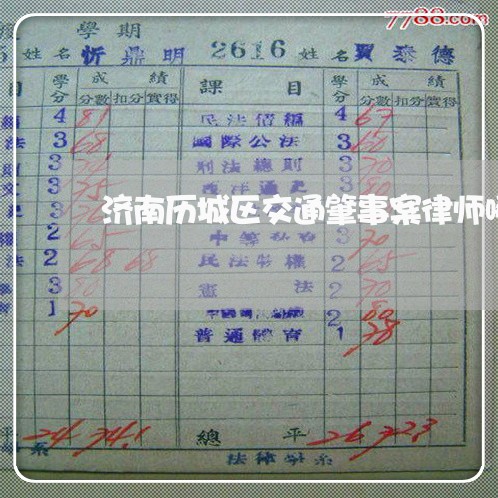 7788.com
度 學期
5 姓名 忻鼎明 2616 姓名 賈泰德
目 學分 成績 課目 學分 成績
分數 扣分 實得 分數 扣分 實得
4 81 民法債編 4 67
法 3 68 國際公法 3 60
則 3 刑法總則 3 70
文 3 75 西洋通史 3 80
史 3
濟南历城区交通肇事案律师
2 65 3 70
法 2 68 68 民法物權 2 65
3 80 憲法 2 70
育 1 70 2 80
普通體育 1 78
平 24 74.1 總平 26 72.3
系 法律學系